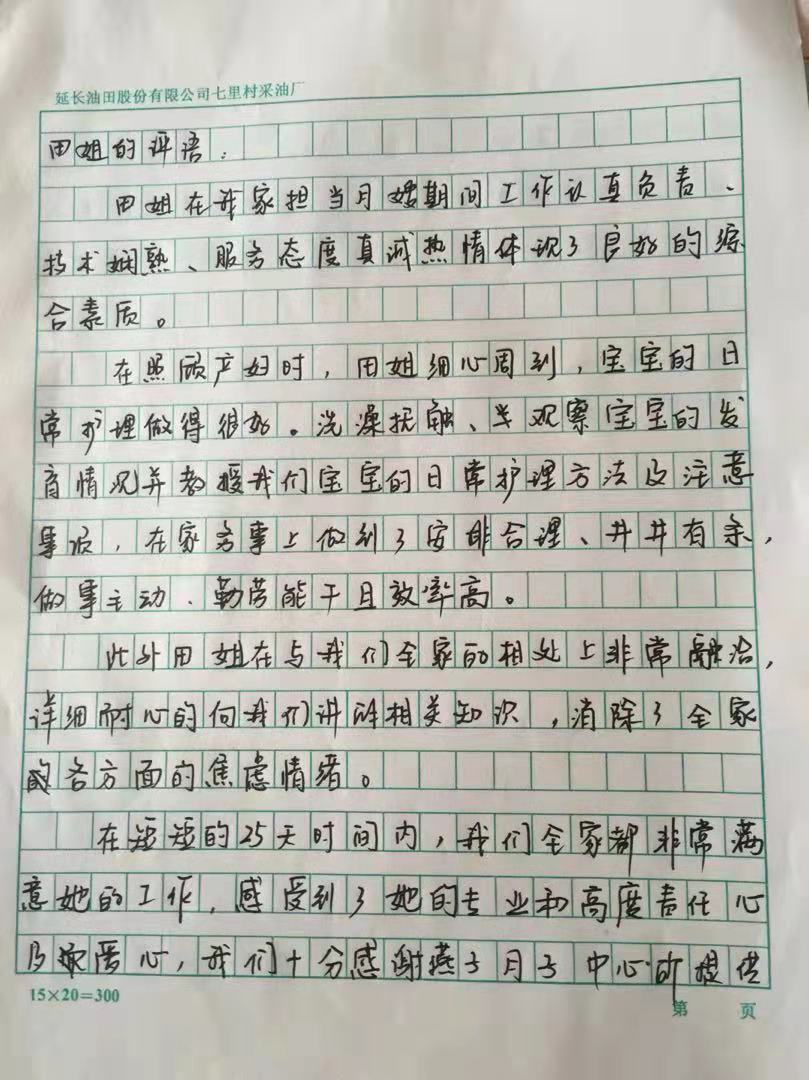 延长油田股份有限公司七里村采油厂
田姐的评语：
田姐在我家担当月嫂期间工作认真负责、
技术娴熟、服务态度真诚热情体现了良好的综
合素质。
在照顾产妇时，田姐细心周到，宝宝的日
常护理做得很好。洗澡抚触、观察宝宝的发
育情况并教授我们宝宝的日常护理方法及注意
事项，在家务事上做到了安排合理、井井有条，
做事主动、勤劳能干且效率高。
此外田姐在与我们全家的相处上非常融洽，
详细耐心的向我们讲解相关知识，消除了全家
各方面的焦虑情绪。
在短短的25天时间内，我们全家都非常满
意她的工作，感受到了她的专业和高度责任心
及爱心，我们十分感谢燕子月子中心所提供
15×20=300
第 页